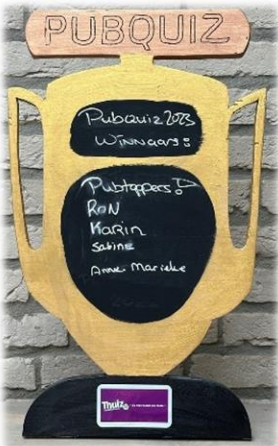 PUBQUIZ
Pubquiz 2023
Winnaars:
Pubtoppers!
Ron
Karin
Sabine
Anne Marieke
Thulz